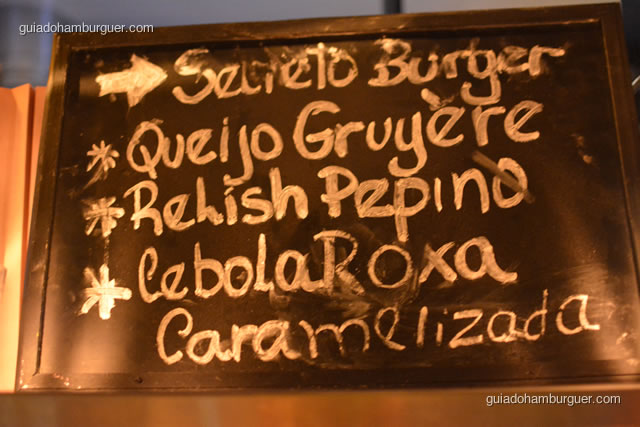 guiadohamburguer.com
Secreto Burger
* Queijo Gruyère
* Relish Pepino
* Cebola Roxa
Caramelizada
guiadohamburguer.com